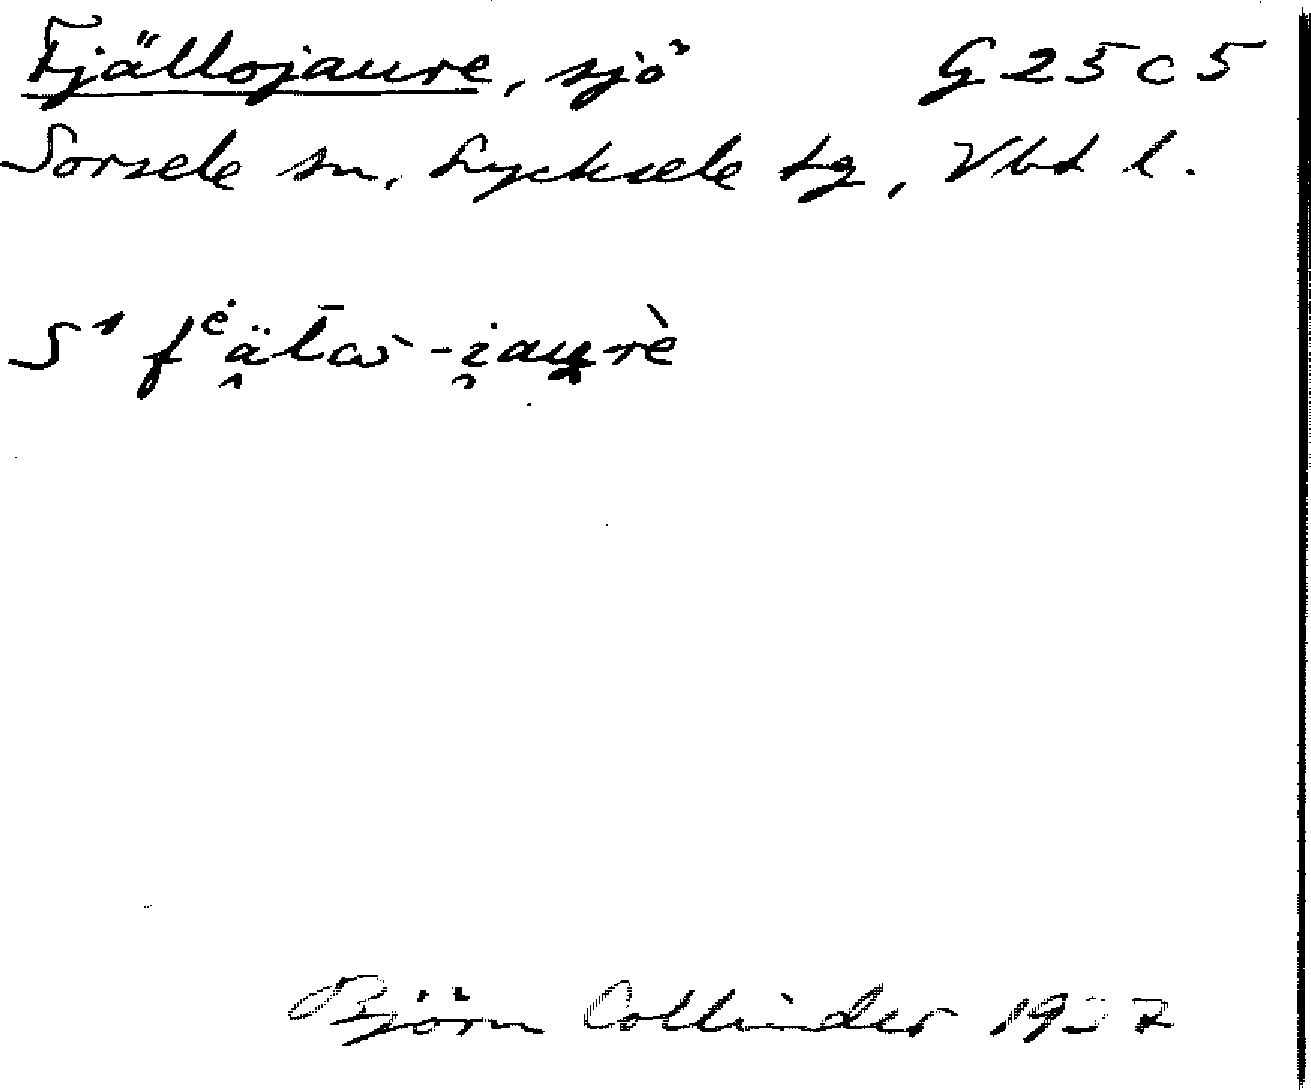 Fjällojaure, sjö G 25 c 5
Sorsele sn, Lycksele tg, Vbt l.
S¹ fᵉ̇ä̭l̄ὼ-i̯au̯rè
Björn Collinder